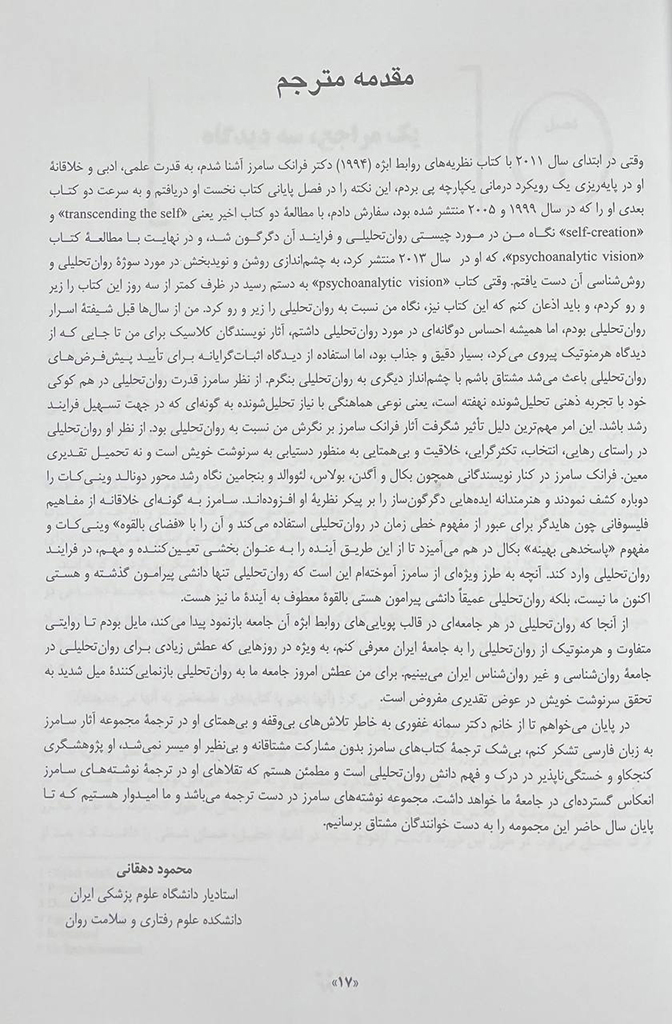 مقدمه مترجم
وقتی در ابتدای سال ۲۰۱۱ با کتاب نظریه‌های روابط ابژه (۱۹۹۴) دکتر فرانک سامرز آشنا شدم، به قدرت علمی، ادبی و خلاقانهٔ
او در پایه‌ریزی یک رویکرد درمانی یکپارچه پی بردم، این نکته را در فصل پایانی کتاب نخست او دریافتم و به سرعت دو کتاب
بعدی او را که در سال ۱۹۹۹ و ۲۰۰۵ منتشر شده بود، سفارش دادم، با مطالعهٔ دو کتاب اخیر یعنی «transcending the self» و
«self-creation» نگاه من در مورد چیستی روان‌تحلیلی و فرایند آن دگرگون شد، و در نهایت با مطالعهٔ کتاب
«psychoanalytic vision»، که او در سال ۲۰۱۳ منتشر کرد، به چشم‌اندازی روشن و نویدبخش در مورد سوژهٔ روان‌تحلیلی و
روش‌شناسی آن دست یافتم. وقتی کتاب «psychoanalytic vision» به دستم رسید در ظرف کمتر از سه روز این کتاب را زیر
و رو کردم، و باید اذعان کنم که این کتاب نیز، نگاه من نسبت به روان‌تحلیلی را زیر و رو کرد. من از سال‌ها قبل شیفتهٔ اسرار
روان‌تحلیلی بودم، اما همیشه احساس دوگانه‌ای در مورد روان‌تحلیلی داشتم، آثار نویسندگان کلاسیک برای من تا جایی که از
دیدگاه هرمنوتیک پیروی می‌کرد، بسیار دقیق و جذاب بود، اما استفاده از دیدگاه اثبات‌گرایانه برای تأیید پیش‌فرض‌های
روان‌تحلیلی باعث می‌شد مشتاق باشم با چشم‌انداز دیگری به روان‌تحلیلی بنگرم. از نظر سامرز قدرت روان‌تحلیلی در هم کوکی
خود با تجربه ذهنی تحلیل‌شونده نهفته است، یعنی نوعی هماهنگی با نیاز تحلیل‌شونده به گونه‌ای که در جهت تسهیل فرایند
رشد باشد. این امر مهم‌ترین دلیل تأثیر شگرفت آثار فرانک سامرز بر نگرش من نسبت به روان‌تحلیلی بود. از نظر او روان‌تحلیلی
در راستای رهایی، انتخاب، تکثرگرایی، خلاقیت و بی‌همتایی به منظور دستیابی به سرنوشت خویش است و نه تحمیل تقدیری
معین. فرانک سامرز در کنار نویسندگانی همچون بکال و آگدن، بولاس، لئووالد و بنجامین نگاه رشد محور دونالد وینی‌کات را
دوباره کشف نمودند و هنرمندانه ایده‌هایی دگرگون‌ساز را بر پیکر نظریهٔ او افزوده‌اند. سامرز به گونه‌ای خلاقانه از مفاهیم
فلیسوفانی چون هایدگر برای عبور از مفهوم خطی زمان در روان‌تحلیلی استفاده می‌کند و آن را با «فضای بالقوه» وینی‌کات و
مفهوم «پاسخدهی بهینه» بکال در هم می‌آمیزد تا از این طریق آینده را به عنوان بخشی تعیین‌کننده و مهم، در فرایند
روان‌تحلیلی وارد کند. آنچه به طرز ویژه‌ای از سامرز آموخته‌ام این است که روان‌تحلیلی تنها دانشی پیرامون گذشته و هستی
اکنون ما نیست، بلکه روان‌تحلیلی عمیقاً دانشی پیرامون هستی بالقوهٔ معطوف به آیندهٔ ما نیز هست.
از آنجا که روان‌تحلیلی در هر جامعه‌ای در قالب پویایی‌های روابط ابژه آن جامعه بازنمود پیدا می‌کند، مایل بودم تا روایتی
متفاوت و هرمنوتیک از روان‌تحلیلی را به جامعهٔ ایران معرفی کنم، به ویژه در روزهایی که عطش زیادی برای روان‌تحلیلی در
جامعهٔ روان‌شناسی و غیر روان‌شناس ایران می‌بینیم. برای من عطش امروز جامعه ما به روان‌تحلیلی بازنمایی‌کنندهٔ میل شدید به
تحقق سرنوشت خویش در عوض تقدیری مفروض است.
در پایان می‌خواهم تا از خانم دکتر سمانه غفوری به خاطر تلاش‌های بی‌وقفه و بی‌همتای او در ترجمهٔ مجموعه آثار سامرز
به زبان فارسی تشکر کنم، بی‌شک ترجمهٔ کتاب‌های سامرز بدون مشارکت مشتاقانه و بی‌نظیر او میسر نمی‌شد، او پژوهشگری
کنجکاو و خستگی‌ناپذیر در درک و فهم دانش روان‌تحلیلی است و مطمئن هستم که تقلاهای او در ترجمهٔ نوشته‌های سامرز
انعکاس گسترده‌ای در جامعهٔ ما خواهد داشت. مجموعه نوشته‌های سامرز در دست ترجمه می‌باشد و ما امیدوار هستیم که تا
پایان سال حاضر این مجمومه را به دست خوانندگان مشتاق برسانیم.
محمود دهقانی
استادیار دانشگاه علوم پزشکی ایران
دانشکده علوم رفتاری و سلامت روان
«۱۷»